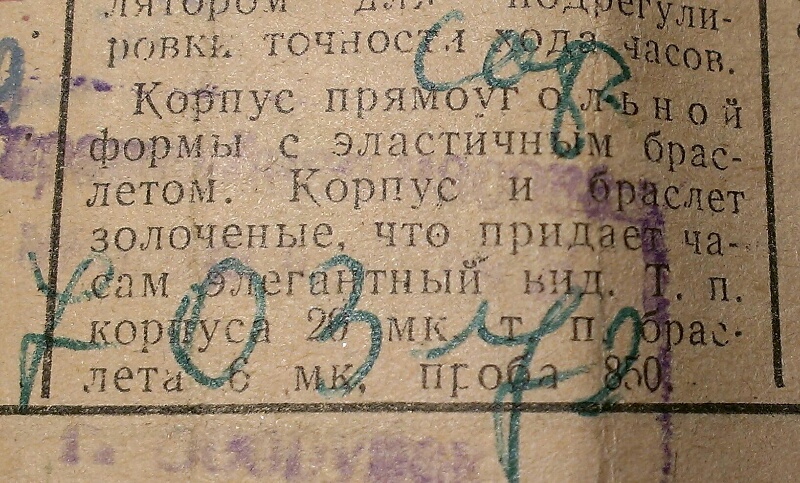 лятором для подрегули-
ровки точности хода часов.
Корпус прямоугольной
формы с эластичным брас-
летом. Корпус и браслет
золоченые, что придает ча-
сам элегантный вид. Т. п.
корпуса 20 мк т. п. брас-
лета 6 мк, проба 850.